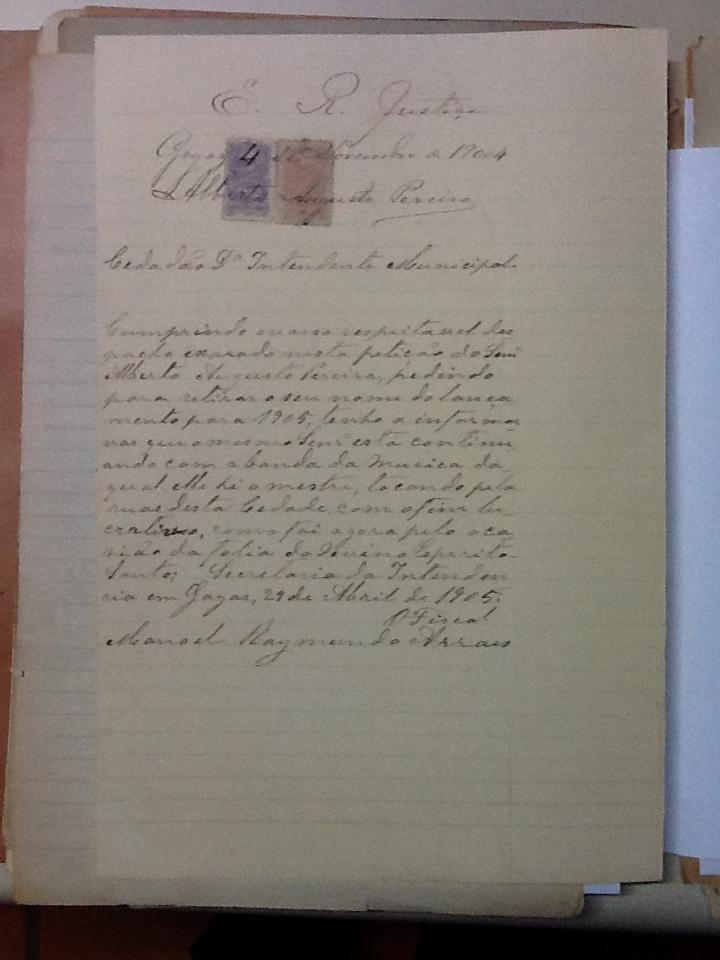 E. R. Justiça
Goyaz 4 de Novembro de 1904
Alberto Augusto Pereira
Cedadão Dr Intendente Municipal.
Cumprindo o vosso respeitavel des
pacho exarado nesta petição do Senr
Alberto Augusto Pereira, pedindo
para retirar o seu nome do lança
mento para 1905, tenho a informa
var que o mesmo Senr está continu
ando com a banda da Musica da
qual é o mestre, tocando pela
ruas desta Cedade, com o fim lu
crativo, como foi agora pelo oca
sião da folia do Devino Espirito
Santo; Secretaria da Intenden
cia em Goyaz, 29 de Abril de 1905.
O Fiscal
Manoel Raymundo Arraes